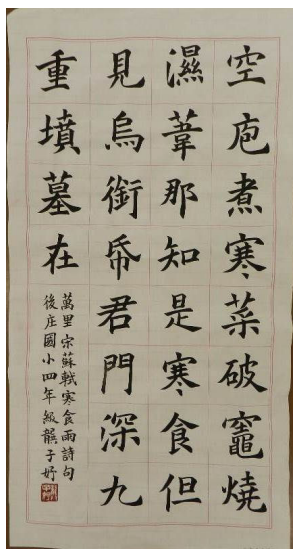 空庖煮寒菜破竈燒
濕葦那知是寒食但
見烏銜帋君門深九
重墳墓在
萬里 宋蘇軾寒食雨詩句
後庄國小四年級 子妤